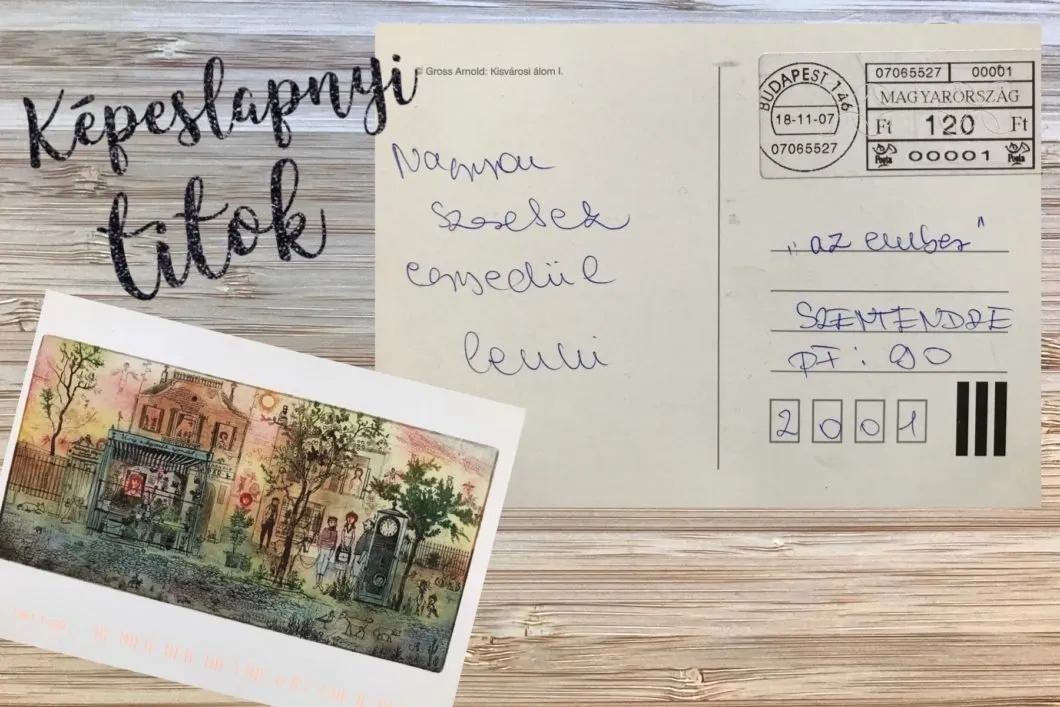 Képeslapnyi
titok
© Gross Arnold: Kisvárosi álom I.
Nagyon
szeretek
egyedül
lenni
BUDAPEST 146
18-11-07
07065527
07065527 00001
MAGYARORSZÁG
Ft 120 Ft
Posta 00001 Posta
„az ember"
SZENTENDRE
Pf: 90
2001